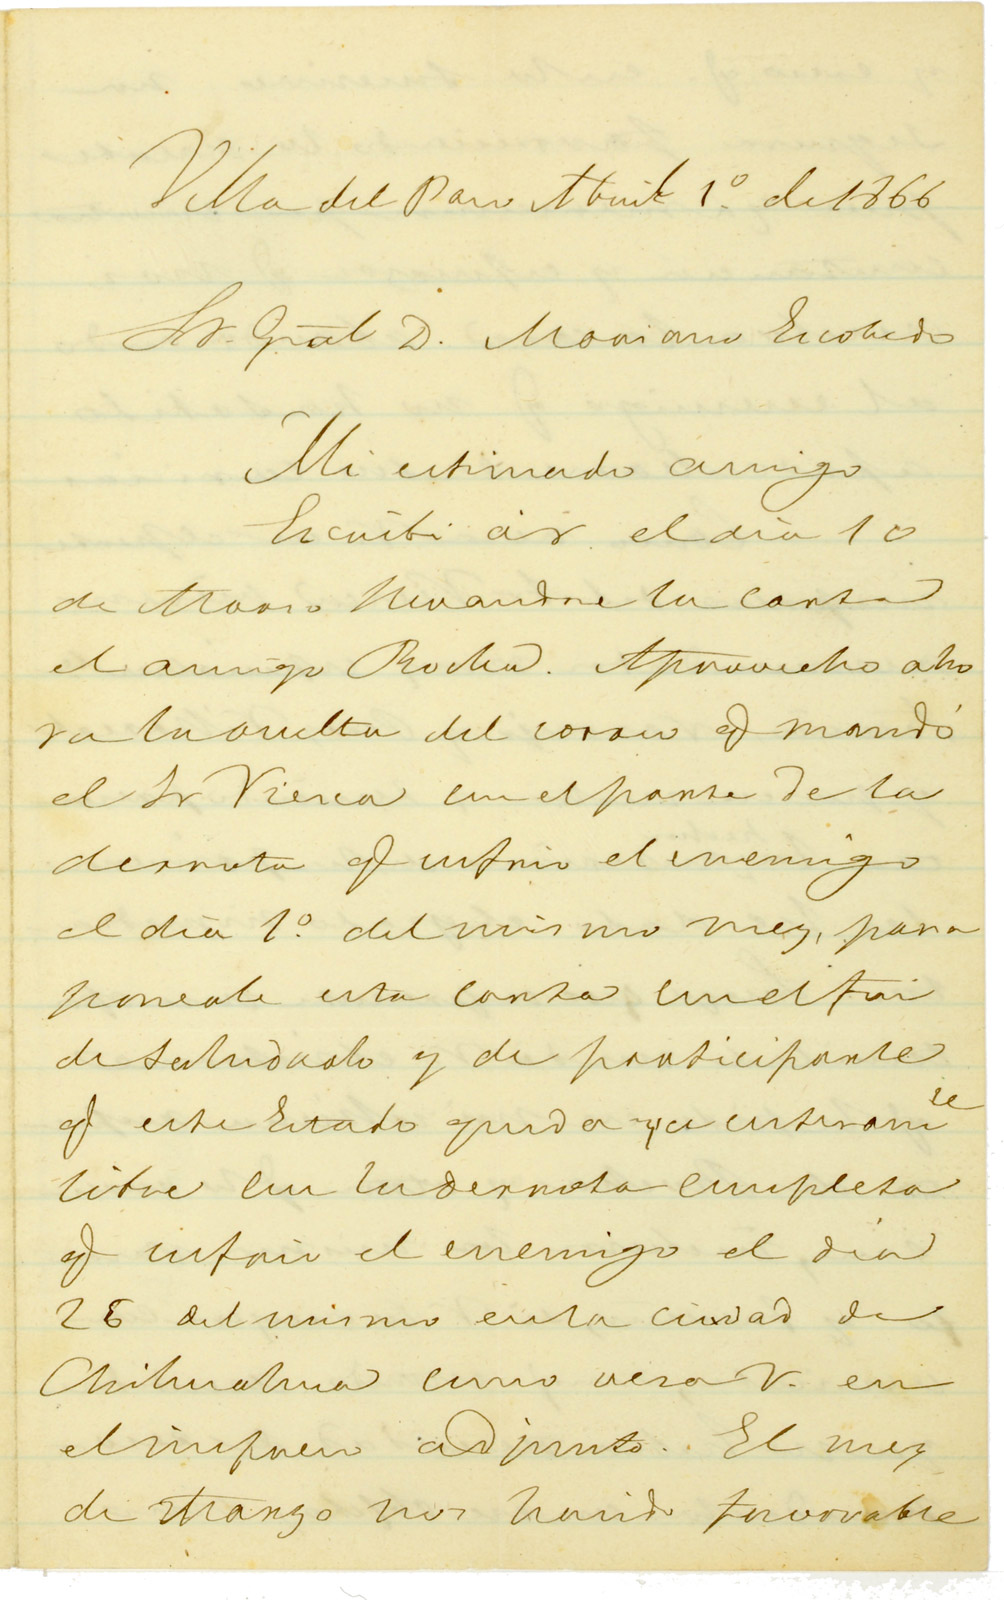 Villa del Paso Abril 1º. de 1866
Sr. Gral D. Mariano Escobedo
Mi estimado amigo
Escribi á V. el dia 10
de Marzo llevandole la carta
el amigo Rocha. Aprovecho aho
ra la vuelta del correo q mandó
el Sr Viesca con el parte de la
derrota q sufrio el enemigo
el dia 1º. del mismo mes, para
ponerle esta carta con el fin
de saludarlo y de participarle
q este Estado queda ya enteram^te
libre con la derrota completa
q sufrio el enemigo el dia
25 del mismo en la ciudad de
Chihuahua como vera V. en
el impreso adjunto. El mes
de Marzo nos ha sido favorable